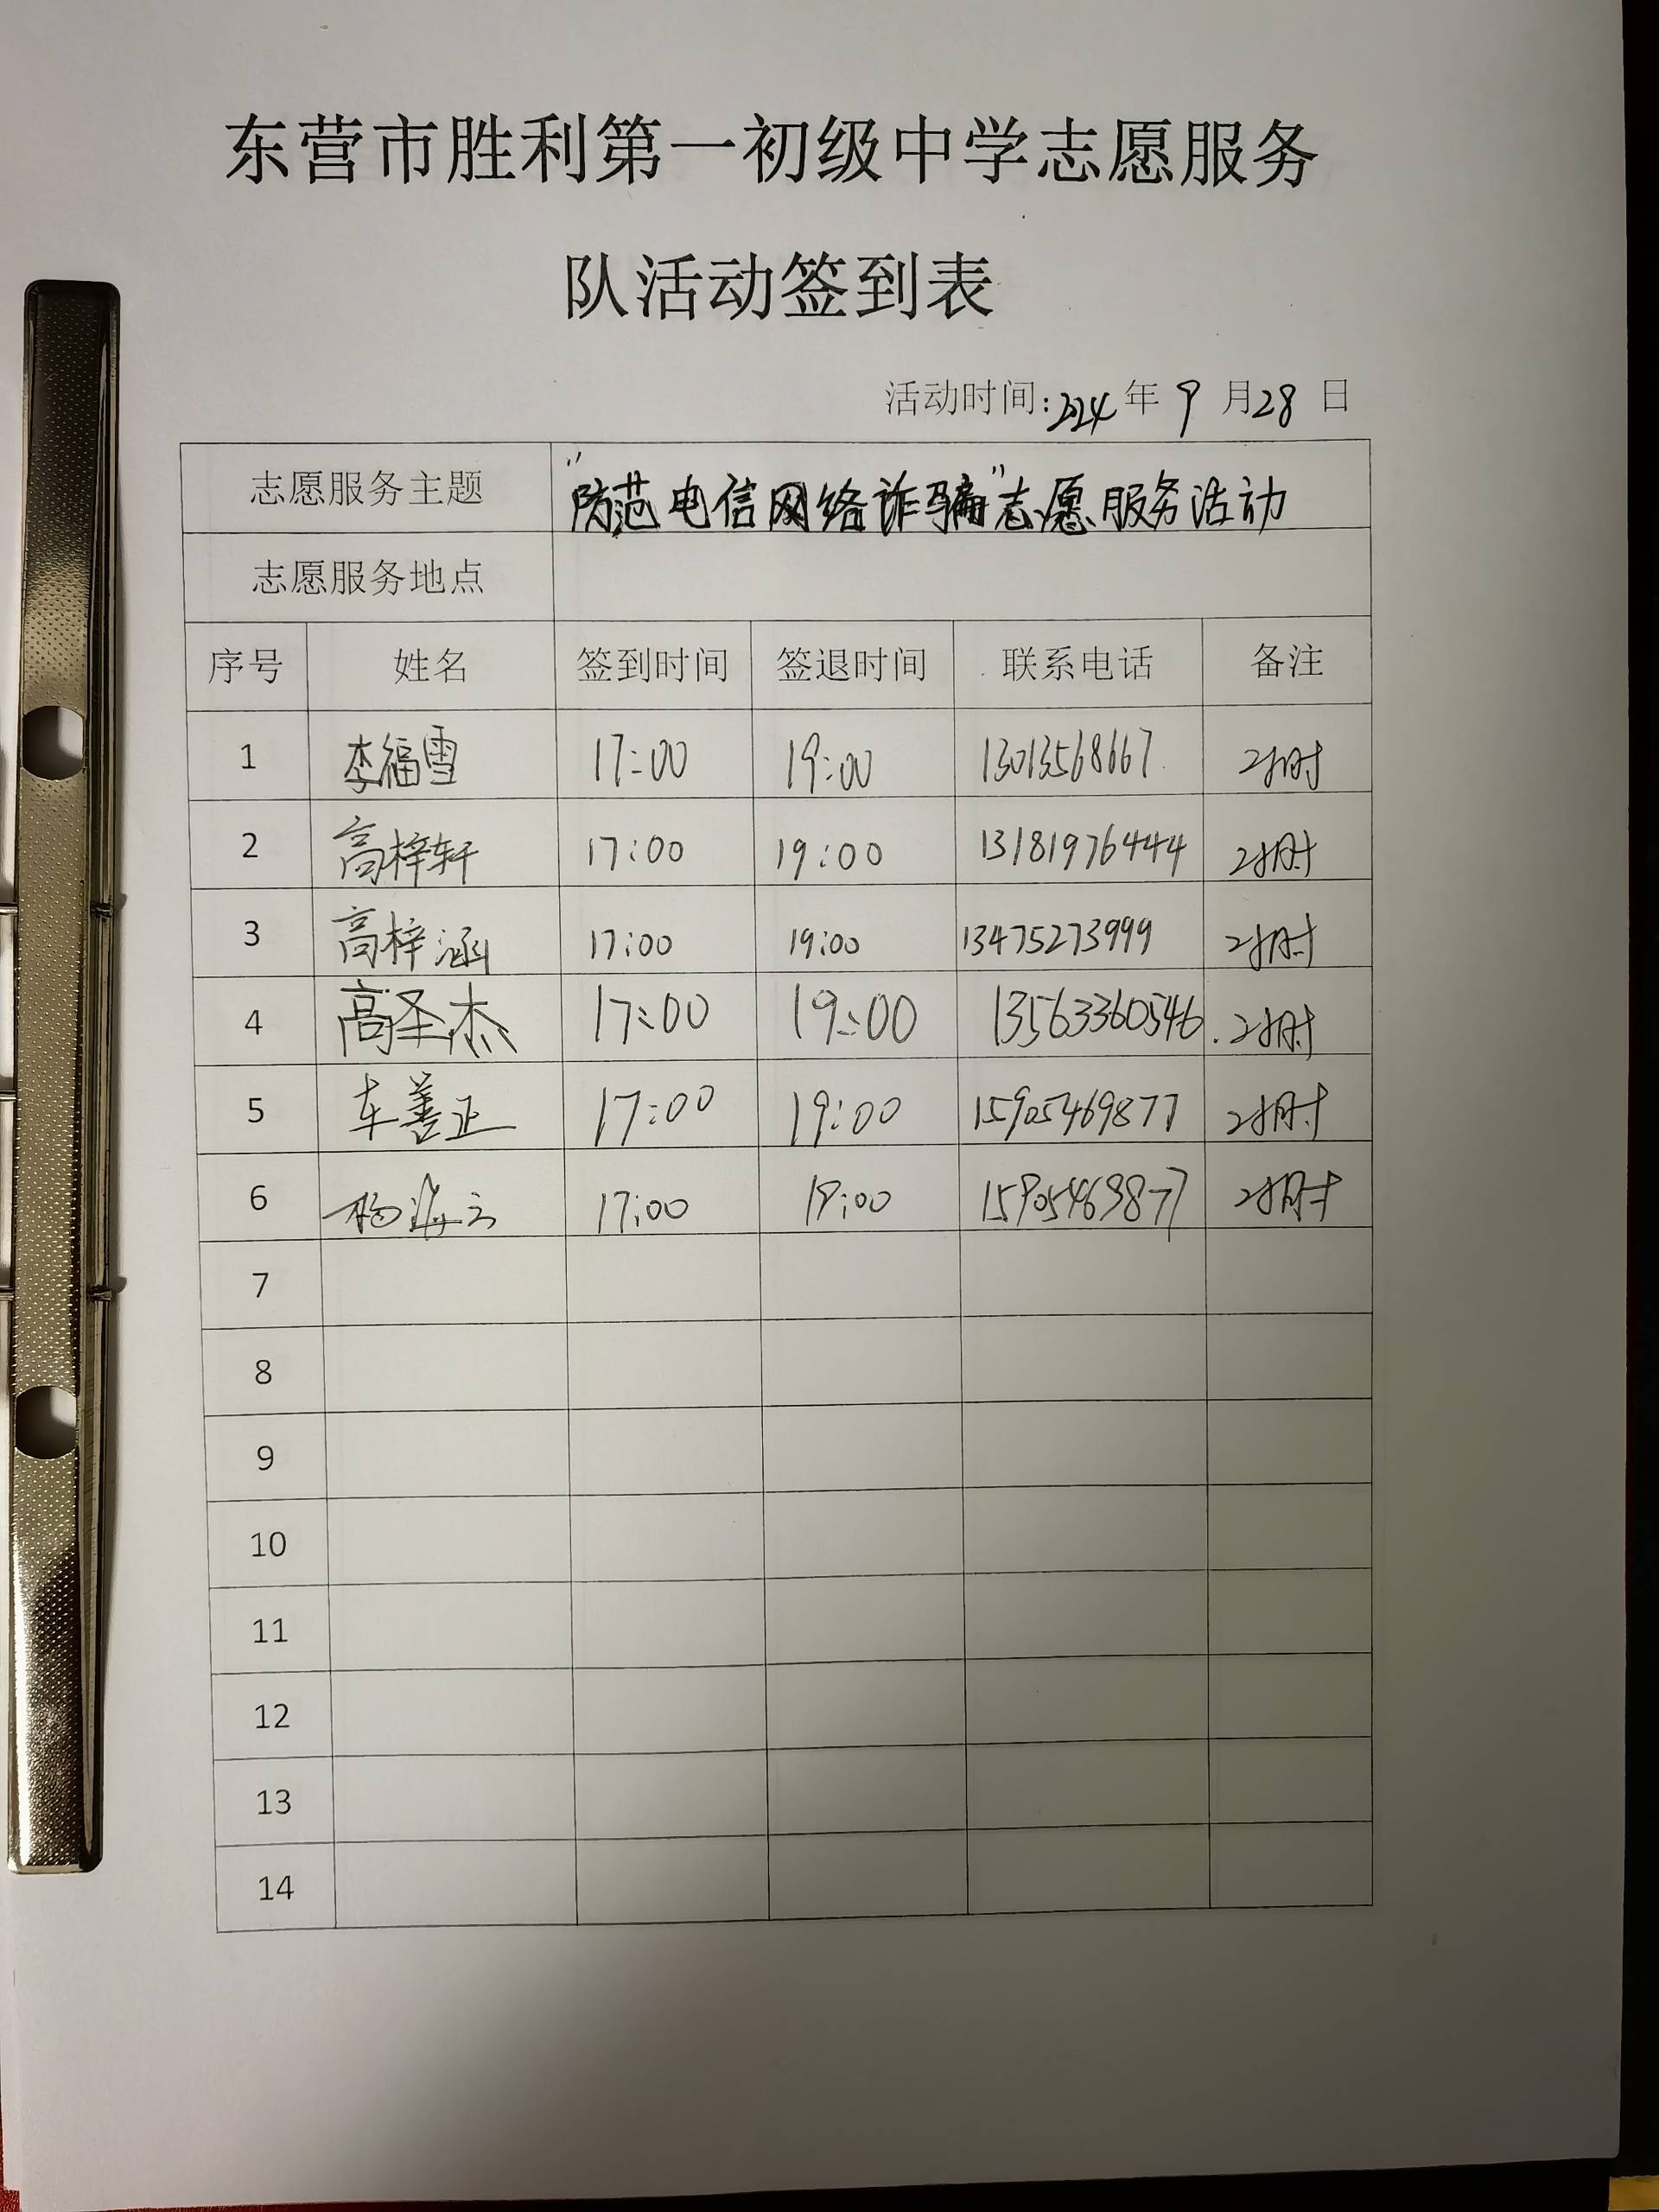 东营市胜利第一初级中学志愿服务
队活动签到表
活动时间:2024年 9 月28 日
志愿服务主题 "防范电信网络诈骗"志愿服务活动
志愿服务地点
序号 姓名 签到时间 签退时间 联系电话 备注
1 李福雪 17:00 19:00 13013568667 2小时
2 高梓轩 17:00 19:00 13181976444 2小时
3 高梓涵 17:00 19:00 13475273999 2小时
4 高圣杰 17:00 19:00 13563360546 2小时
5 车善正 17:00 19:00 15905469877 2小时
6 杨海云 17:00 19:00 15905469877 2小时
7
8
9
10
11
12
13
14